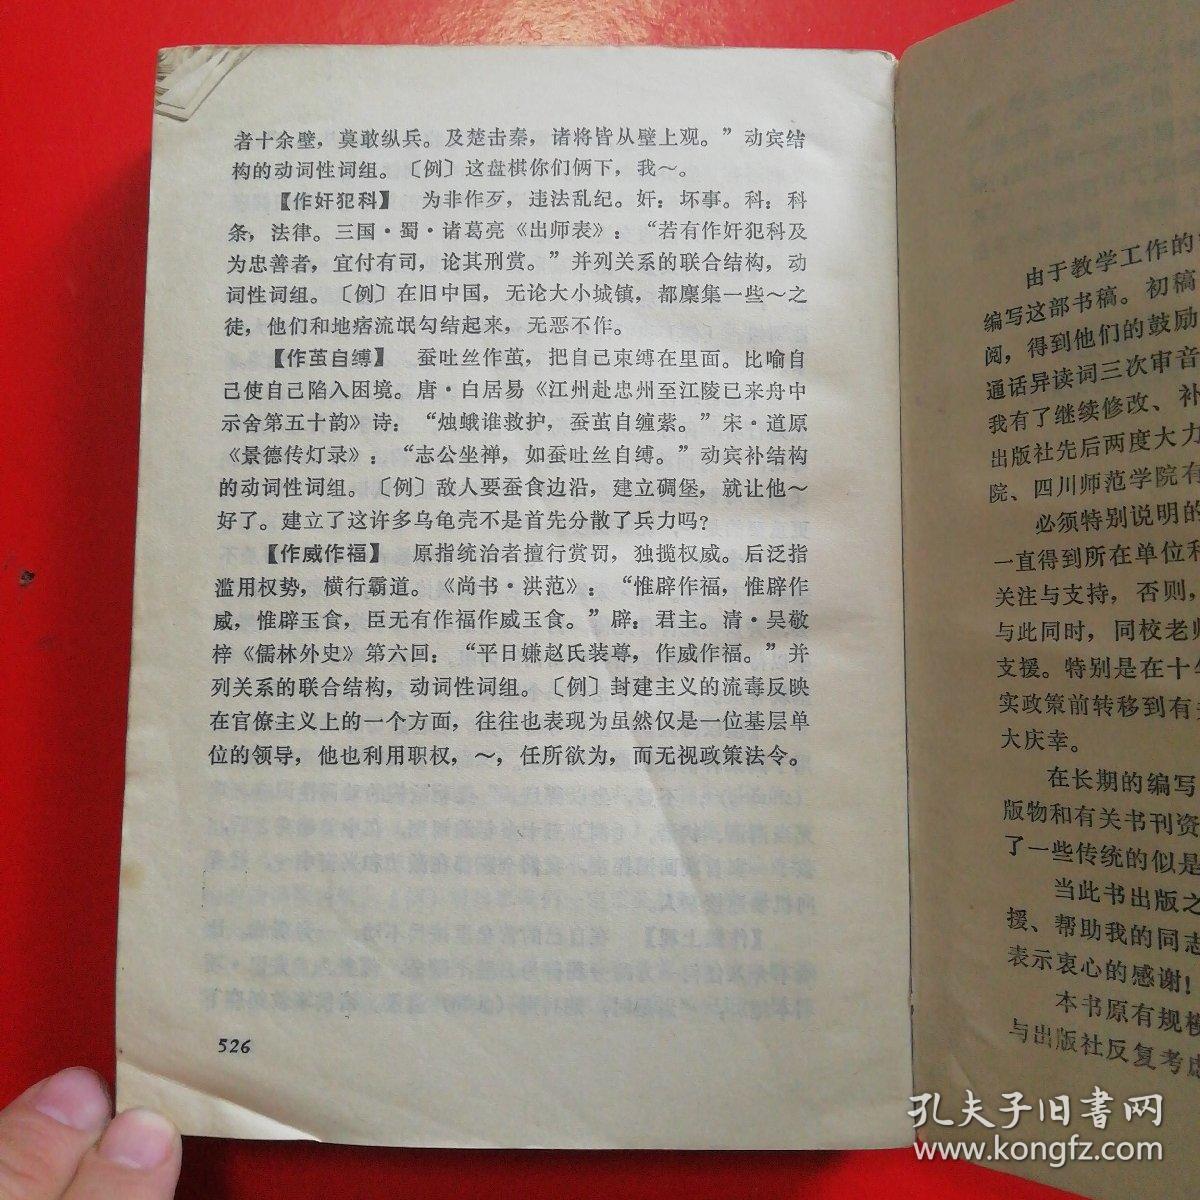 者十余壁，莫敢纵兵。及楚击秦，诸将皆从壁上观。”动宾结
构的动词性词组。〔例〕这盘棋你们俩下，我～。
【作奸犯科】 为非作歹，违法乱纪。奸：坏事。科：科
条，法律。三国·蜀·诸葛亮《出师表》：“若有作奸犯科及
为忠善者，宜付有司，论其刑赏。”并列关系的联合结构，动
词性词组。〔例〕在旧中国，无论大小城镇，都麇集一些～之
徒，他们和地痞流氓勾结起来，无恶不作。
【作茧自缚】 蚕吐丝作茧，把自己束缚在里面。比喻自
己使自己陷入困境。唐·白居易《江州赴忠州至江陵已来舟中
示舍第五十韵》诗：“烛蛾谁救护，蚕茧自缠萦。”宋·道原
《景德传灯录》：“志公坐禅，如蚕吐丝自缚。”动宾补结构
的动词性词组。〔例〕敌人要蚕食边沿，建立碉堡，就让他～
好了。建立了这许多乌龟壳不是首先分散了兵力吗？
【作威作福】 原指统治者擅行赏罚，独揽权威。后泛指
滥用权势，横行霸道。《尚书·洪范》：“惟辟作福，惟辟作
威，惟辟玉食，臣无有作福作威玉食。”辟：君主。清·吴敬
梓《儒林外史》第六回：“平日嫌赵氏装尊，作威作福。”并
列关系的联合结构，动词性词组。〔例〕封建主义的流毒反映
在官僚主义上的一个方面，往往也表现为虽然仅是一位基层单
位的领导，他也利用职权，～，任所欲为，而无视政策法令。
526
由于教学工作的
编写这部书稿。初稿
阅，得到他们的鼓励
通话异读词三次审音
我有了继续修改、补
出版社先后两度大力
院、四川师范学院有
必须特别说明的
一直得到所在单位和
关注与支持，否则，
与此同时，同校老师
支援。特别是在十年
实政策前转移到有关
大庆幸。
在长期的编写
版物和有关书刊资
了一些传统的似是
当此书出版之
援、帮助我的同志
表示衷心的感谢！
本书原有规模
与出版社反复考虑
孔夫子旧书网
www.kongfz.com